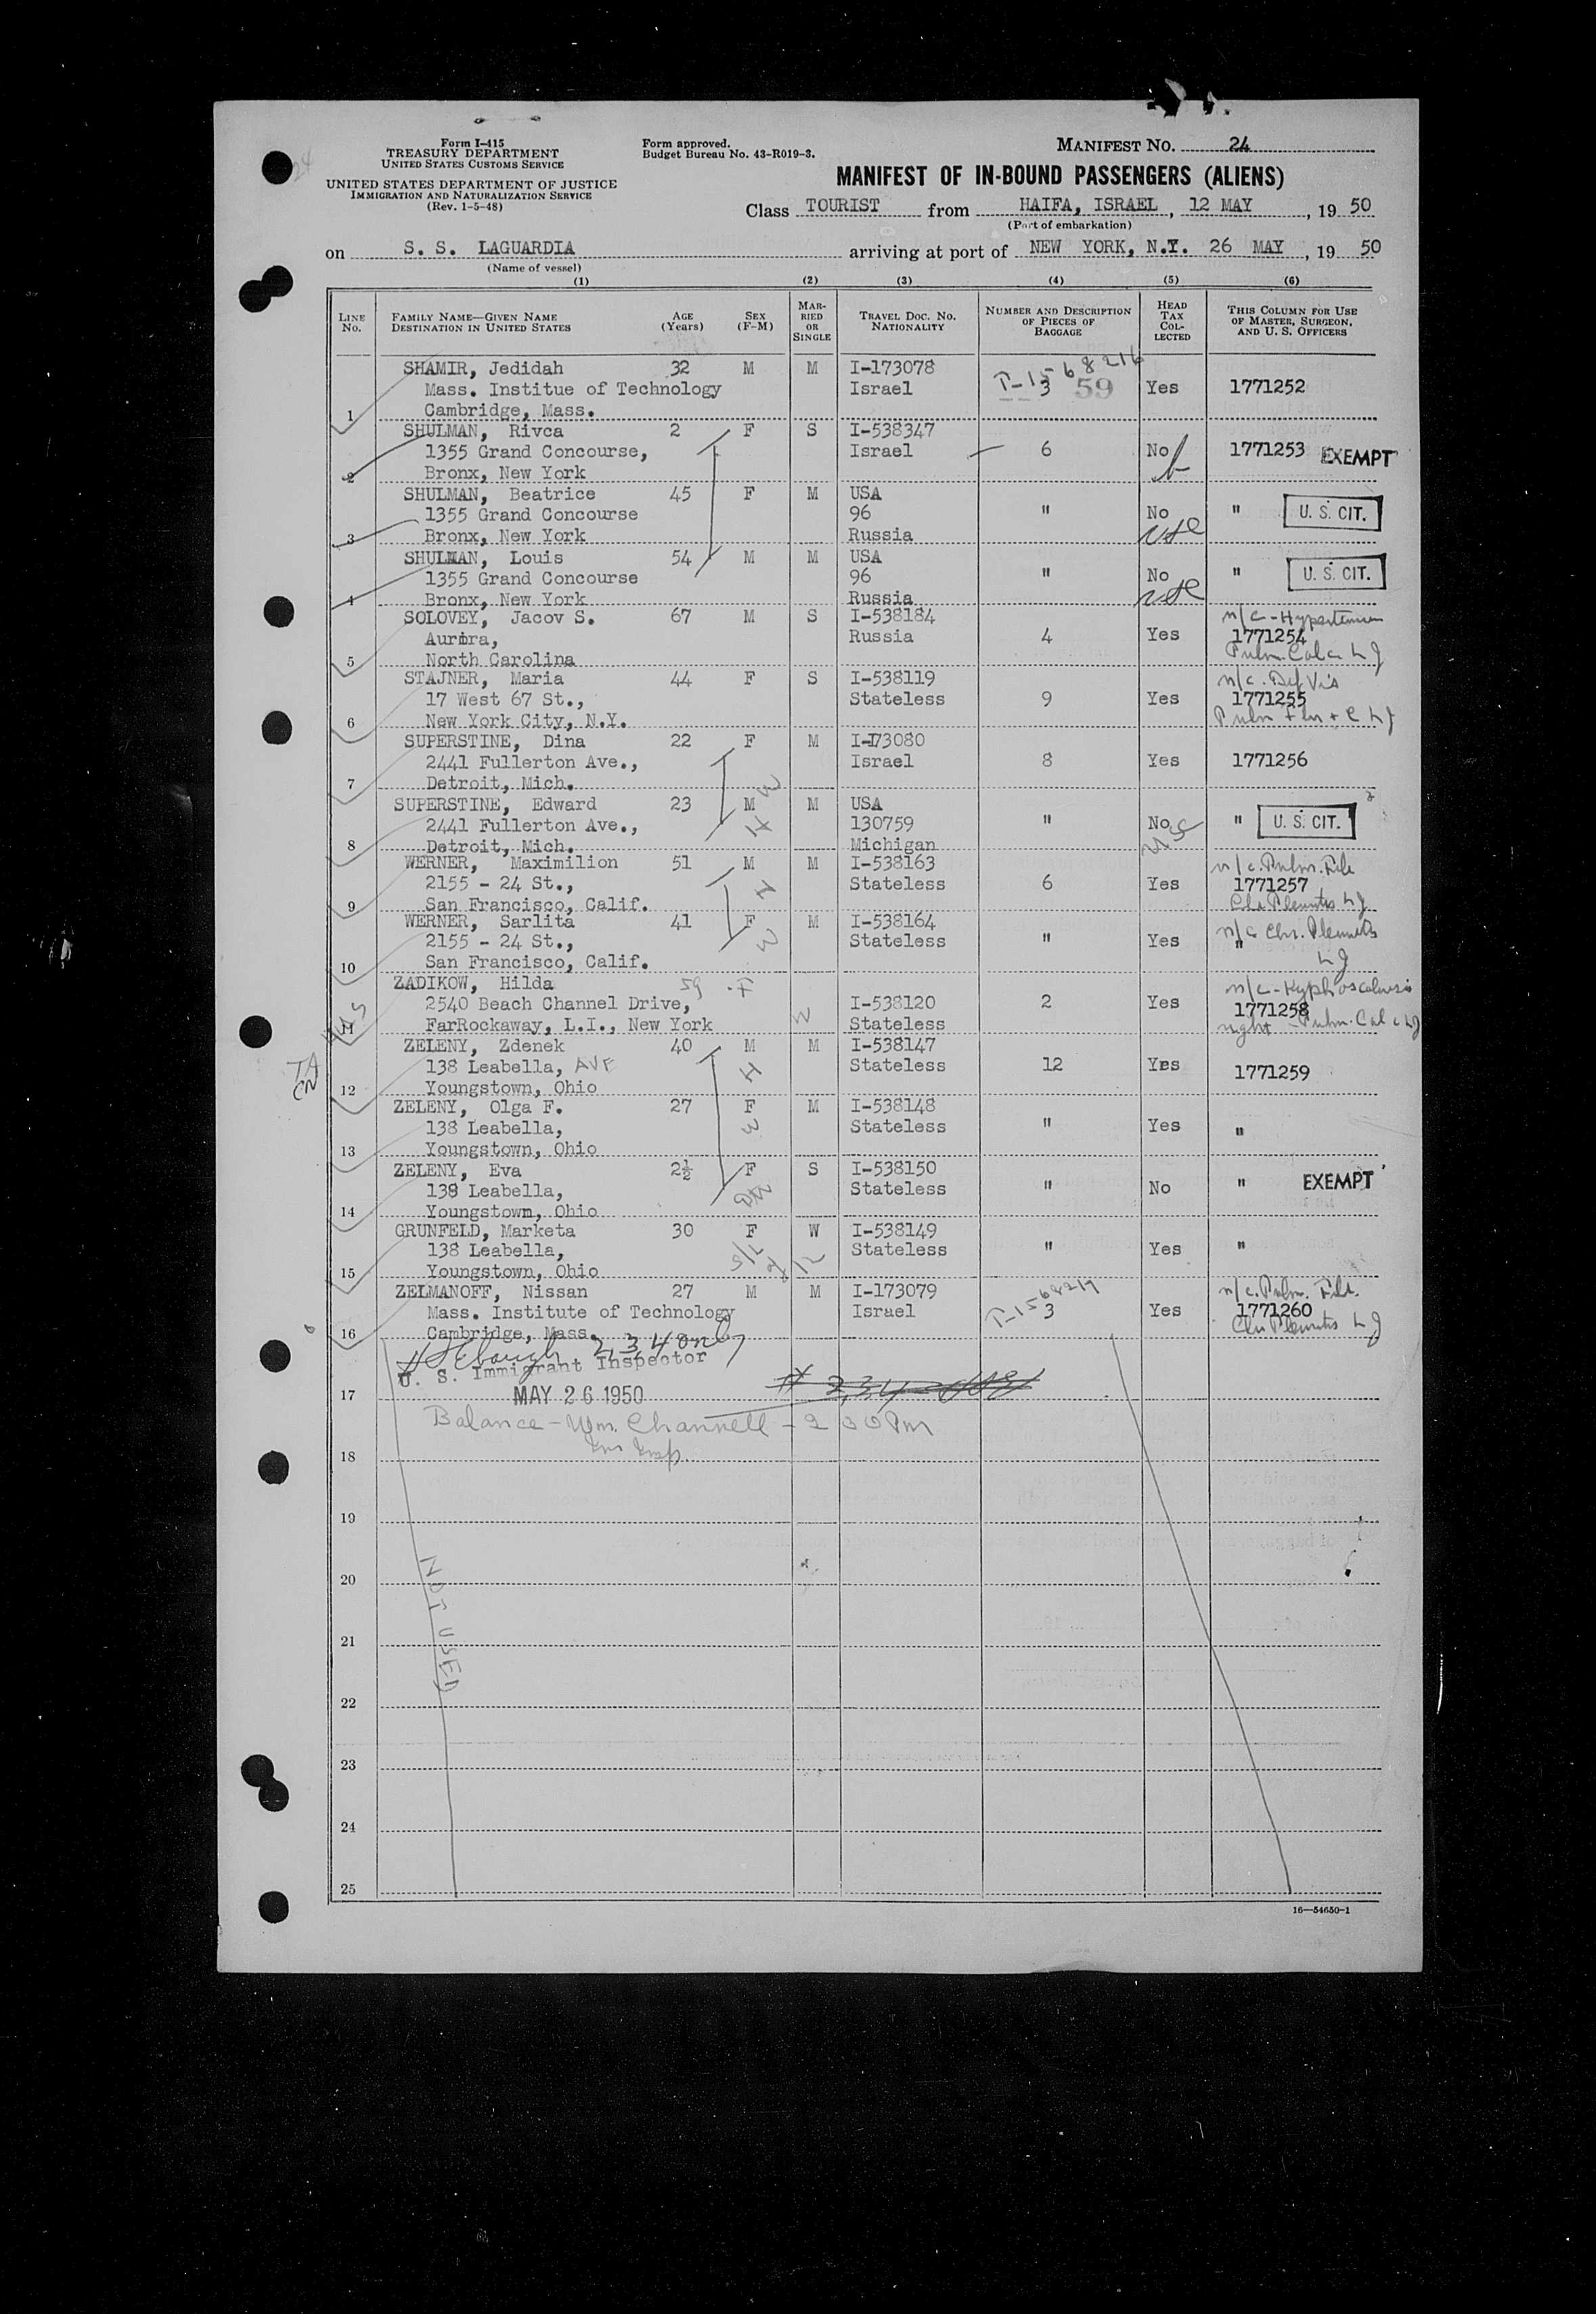 Form I-415
TREASURY DEPARTMENT
UNITED STATES CUSTOMS SERVICE
UNITED STATES DEPARTMENT OF JUSTICE
IMMIGRATION AND NATURALIZATION SERVICE
(Rev. 1-5-48)
Form approved.
Budget Bureau No. 43-R019-3.
MANIFEST NO. 24
MANIFEST OF IN-BOUND PASSENGERS (ALIENS)
Class TOURIST from HAIFA, ISRAEL, 12 MAY, 19 50
(Port of embarkation)
on S. S. LAGUARDIA arriving at port of NEW YORK, N.Y. 26 MAY, 19 50
(Name of vessel)
(1) (2) (3) (4) (5) (6)
LINE No. FAMILY NAME—GIVEN NAME DESTINATION IN UNITED STATES AGE (Years) SEX (F-M) MARRIED OR SINGLE TRAVEL DOC. NO. NATIONALITY NUMBER AND DESCRIPTION OF PIECES OF BAGGAGE HEAD TAX COLLECTED THIS COLUMN FOR USE OF MASTER, SURGEON, AND U. S. OFFICERS
SHAMIR, Jedidah 32 M M I-173078 T-1568216
Mass. Institue of Technology Israel 3 59 Yes 1771252
1 Cambridge, Mass.
SHULMAN, Rivca 2 F S I-538347
1355 Grand Concourse, Israel 6 No 1771253 EXEMPT
2 Bronx, New York
SHULMAN, Beatrice 45 F M USA
1355 Grand Concourse 96 " No " U. S. CIT.
3 Bronx, New York Russia
SHULMAN, Louis 54 M M USA
1355 Grand Concourse 96 " No " U. S. CIT.
4 Bronx, New York Russia
SOLOVEY, Jacov S. 67 M S I-538184 n/c-Hypertension
Aurora, Russia 4 Yes 1771254
5 North Carolina Pulm. Calc
STAJNER, Maria 44 F S I-538119 n/c. Def Vis
17 West 67 St., Stateless 9 Yes 1771255
6 New York City, N.Y.
SUPERSTINE, Dina 22 F M I-173080
2441 Fullerton Ave., Israel 8 Yes 1771256
7 Detroit, Mich. W
SUPERSTINE, Edward 23 M M USA
2441 Fullerton Ave., H 130759 " No " U. S. CIT.
8 Detroit, Mich. Michigan
WERNER, Maximilion 51 M M I-538163 n/c. Pulm.
2155 - 24 St., H Stateless 6 Yes 1771257
9 San Francisco, Calif.
WERNER, Sarlita 41 F M I-538164 n/c Chr.
2155 - 24 St., W Stateless " Yes "
10 San Francisco, Calif.
ZADIKOW, Hilda 59 F n/c-Kyphoscoliosis
2540 Beach Channel Drive, W I-538120 2 Yes 1771258
11 FarRockaway, L.I., New York Stateless right - Pulm. Calc
ZELENY, Zdenek 40 M M I-538147
138 Leabella, AVE H Stateless 12 Yes 1771259
12 Youngstown, Ohio
ZELENY, Olga F. 27 F M I-538148
138 Leabella, W Stateless " Yes "
13 Youngstown, Ohio
ZELENY, Eva 2½ F S I-538150
138 Leabella, Stateless " No " EXEMPT
14 Youngstown, Ohio
GRUNFELD, Marketa 30 F W I-538149
138 Leabella, Stateless " Yes "
15 Youngstown, Ohio
ZELMANOFF, Nissan 27 M M I-173079 T-1568217 n/c. Pulm.
Mass. Institute of Technology Israel 3 Yes 1771260
16 Cambridge, Mass.
2,3,4 only
U. S. Immigrant Inspector
17 MAY 26 1950
Balance - Wm. Channell - 2 30 Pm
Im Insp.
18
19
20
NOT USED
21
22
23
24
25
16—54650-1